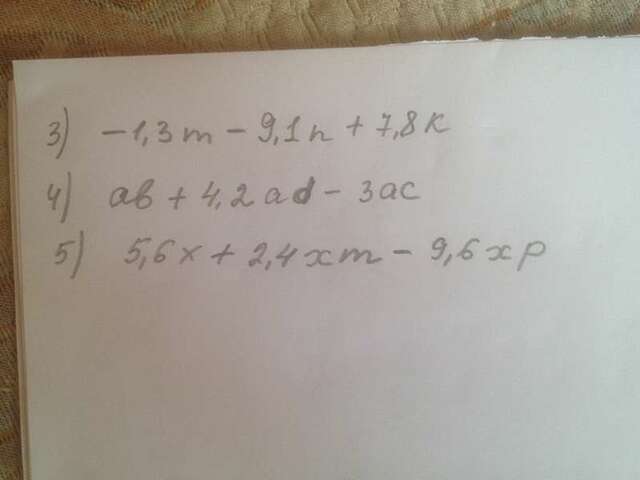 3) -1,3m - 9,1n + 7,8k
4) ab + 4,2ad - 3ac
5) 5,6x + 2,4xm - 9,6xp